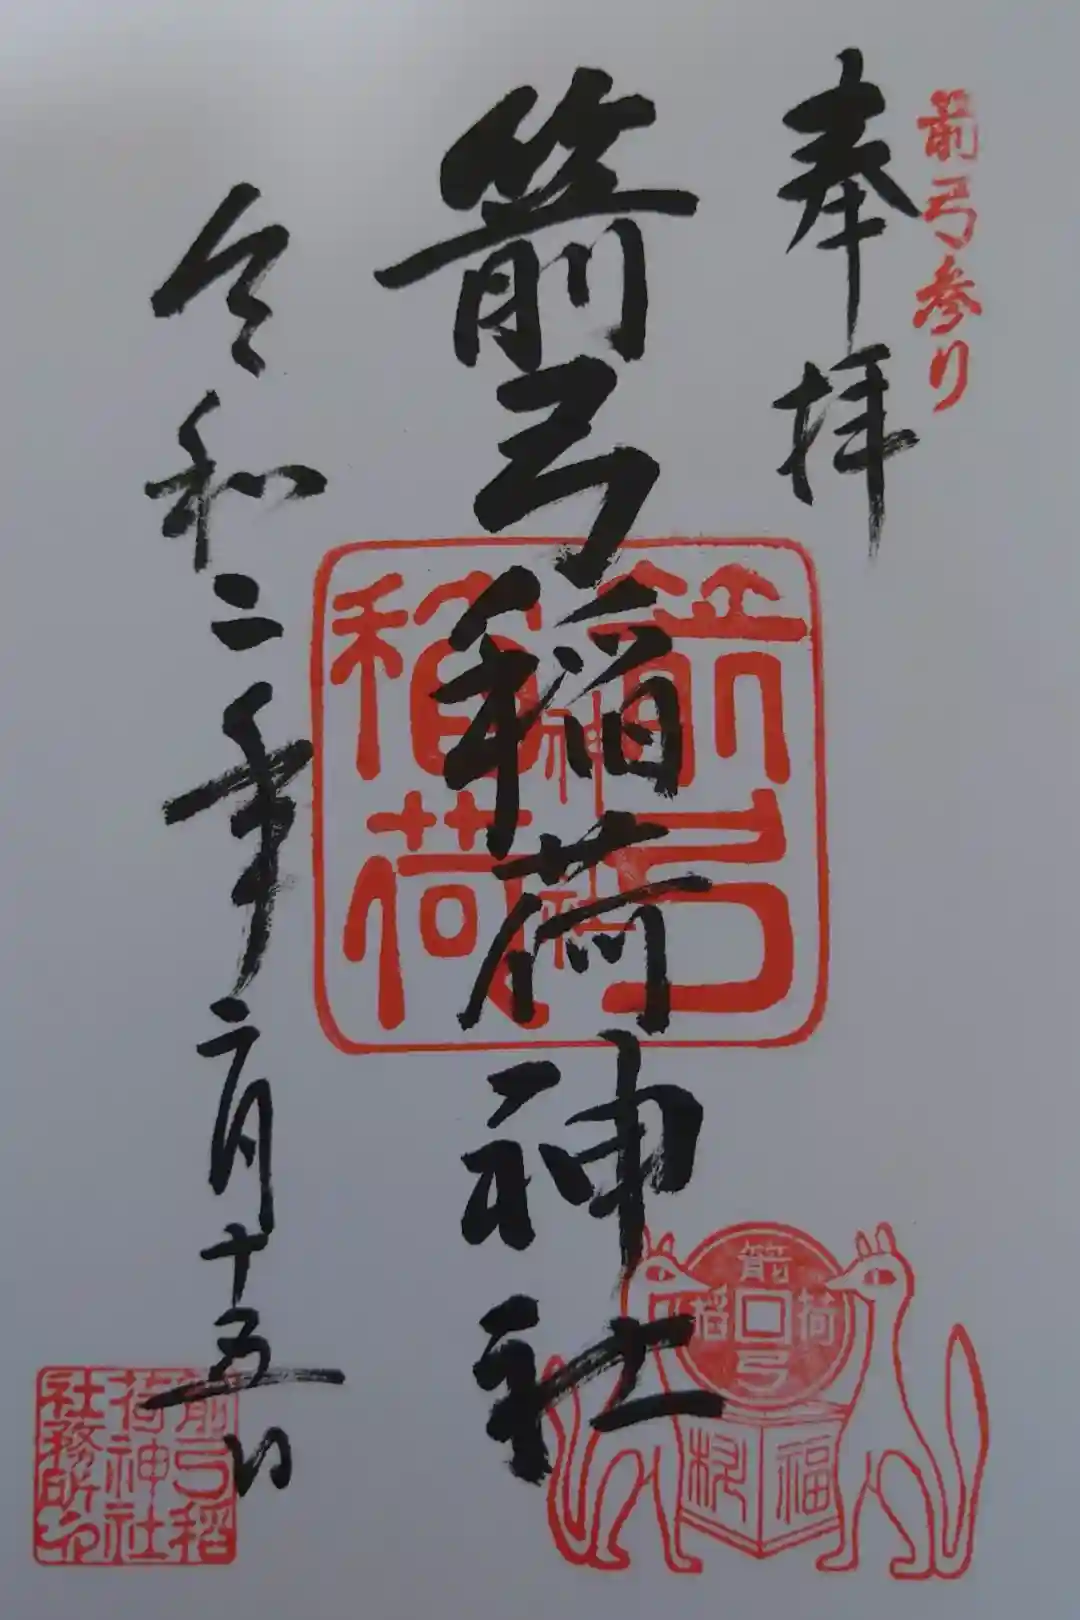 箭弓参り
奉拝
箭弓稲荷神社
令和二年二月十五日
箭弓
稲荷
神社
箭弓
稲荷
福
箭弓稲
荷神社
社務所